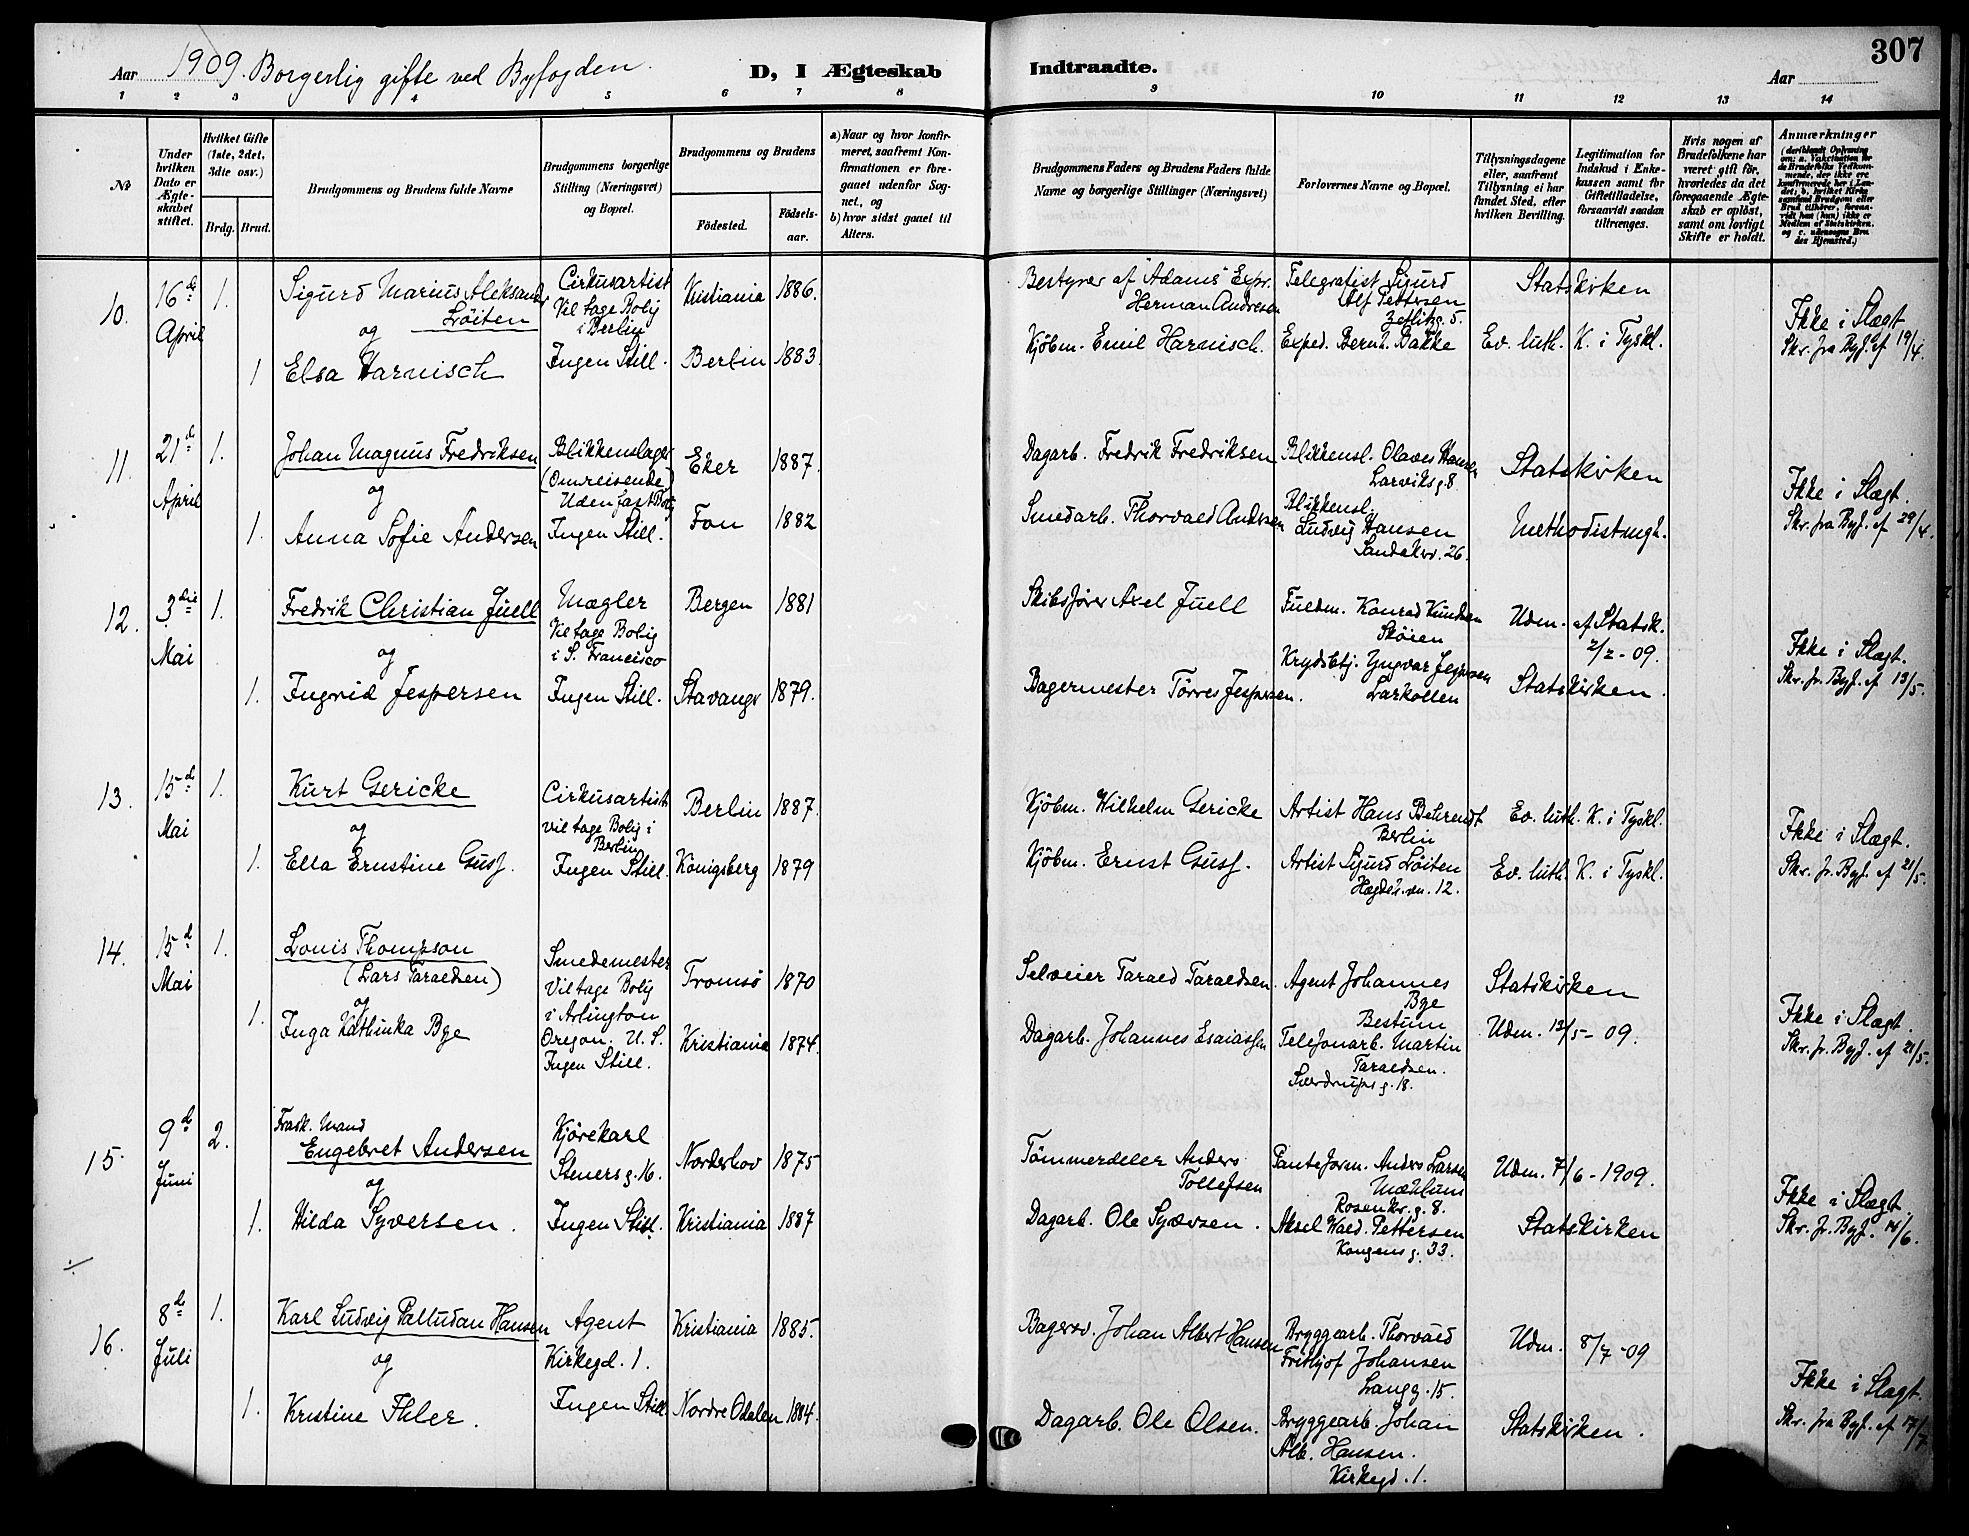 Aar 1909. Borgerlig gifte ved Byfogden.
D, I Ægteskab
Indtraadte.
Aar
307
1 2 3 4 5 6 7 8 9 10 11 12 13 14
No
Under
hvilken
Dato er
Ægte-
skabet
stiftet.
Hvilket Gifte
(1ste, 2det,
3die osv.)
Brdg. Brud.
Brudgommens og Brudens fulde Navne
Brudgommens borgerlige
Stilling (Næringsvei)
og Bopæl.
Brudgommens og Brudens
Fødested.
Fødsels-
aar.
a) Naar og hvor konfir-
meret, saafremt Kon-
firmationen er fore-
gaaet udenfor Sog-
net, og
b) hvor sidst gaaet til
Alters.
Brudgommens Faders og Brudens Faders fulde
Navne og borgerlige Stillinger (Næringsvei)
Forlovernes Navne og Bopæl.
Tillysningsdagene
eller, saafremt
Tillysning ei har
fundet Sted, efter
hvilken Bevilling.
Legitimation for
Indskud i Enke-
kassen samt for
Giftetilladelse,
forsaavidt saadan
tiltrænges.
Hvis nogen af
Brudefolkene har
været gift før,
hvorledes da det
foregaaende Ægte-
skab er opløst,
samt om lovligt
Skifte er holdt.
Anmærkninger
(deriblandt Oplysning
om: a. Vaktination for
de Brudefolks Vedkom-
mende, der ikke ere
konfirmerede her i Lan-
det; b. hvilket Kirke
samfund Brudgom eller
Brud tilhører, forsaa-
vidt han (hun) ikke er
Medlem af Statskirken,
og c. udensogns Bru-
des Hjemsted.)
10. 16de April 1.
Sigurd Marius Aleksander
Løiten
og
1 Elsa Harnisch
Cirkusartist
Vil tage Bolig
i Berlin
Ingen Still.
Kristiania 1886.
Berlin 1883
Bestyrer af "Adams" Expr.
Herman Andresen
Kjøbm. Emil Harnisch.
Telegrafist Sigurd
Alf Pettersen
Zetlitzg. 5.
Exped. Bernh. Bakke
Statskirken
Ev. luth. K. i Tyskl.
Ikke i Slægt
Skr. fra Byf. af 19/4.
11. 21de April 1.
Johan Magnus Fredriksen
og
1. Anna Sofie Andersen
Blikkenslager
(Omreisende)
Uden fast Bolig
Ingen Still.
Eker 1887.
Fon 1882
Dagarb. Fredrik Fredriksen
Smedarb. Thorvald Andersen
Blikkensl. Olaves Hansen
Larviksg. 8.
Blikkensl.
Ludvig Hansen
Sandakv. 26.
Statskirken
Methodistmgh.
Ikke i Slægt.
Skr. fra Byf. af 29/4.
12. 3die Mai 1.
Fredrik Christian Juell
og
1. Ingrid Jespersen
Mægler
Vil tage Bolig
i S. Francisco
Ingen Still.
Bergen 1881
Stavanger 1879.
Skibsfører Axel Juell
Bagermester Tørres Jespersen.
Fuldm. Konrad Knudsen
Skøien
Krydsbtj. Yngvar Jespersen
Larkollen
Udm. af Statsk.
2/2 - 09.
Statskirken.
Ikke i Slægt.
Skr. fr. Byf. af 13/5.
13. 15de Mai 1.
Kurt Gericke
og
1. Ella Ernstine Gusf.
Cirkusartist
vil tage Bolig i
Berlin
Ingen Still.
Berlin 1887.
Königsberg 1879
Kjøbm. Wilhelm Gericke
Kjøbm. Ernst Gusf.
Artist Hans Behrendt
Berlin
Artist Sigurd Løiten
Hægdeh.vn. 12.
Ev. luth. K. i Tyskl.
Ev. luth. K. i Tyskl.
Ikke i Slægt.
Skr. fr. Byf. af 21/5.
14. 15d Mai 1.
Louis Thompson
(Lars Taraldsen)
og
1. Inga Kathinka Bye
Smedemester
Vil tage Bolig
i Arlington
Oregon. U. S.
Ingen Still.
Tromsø 1870
Kristiania 1874.
Selveier Tarald Taraldsen.
Dagarb. Johannes Esaiassen
Agent Johannes
Bye
Bestum
Telefonarb. Martin
Taraldsen.
Sverdrups g. 18.
Statskirken
Udm. 12/5 - 09.
Ikke i Slægt.
Skr. fr. Byf. af 21/5.
15. 9d Juni 2.
Frask. Mand
Engebret Andersen
og
1. Hilda Syversen.
Kjørekarl
Stenersg. 16.
Ingen Still.
Norderhov 1875
Kristiania 1887
Tømmerdeler Anders
Tollefsen
Dagarb. Ole Syversen.
Panteform. Anders Larsen
Mæhlum
Rosenkr. g. 8.
Aksel Wald. Pettersen
Kongens g. 33.
Udm. 7/6 - 1909.
Statskirken
Ikke i Slægt.
Skr. fr. Byf. 14/6.
16. 8de Juli 1.
Karl Ludvig Palludan Hansen
og
1. Kristine Ihler.
Agent
Kirkegd. 1.
Ingen Still
Kristiania 1885.
Nordre Odalen 1884.
Bagersv. Johan Albert Hansen
Dagarb. Ole Olsen.
Bryggearb. Thorvald
Frithjof Johansen
Langg. 15.
Bryggearb. Johan
Alb. Hansen.
Kirkegd. 1.
Udm. 8/7 - 09
Statskirken.
Ikke i Slægt.
Skr. fra Byf. af 17/7